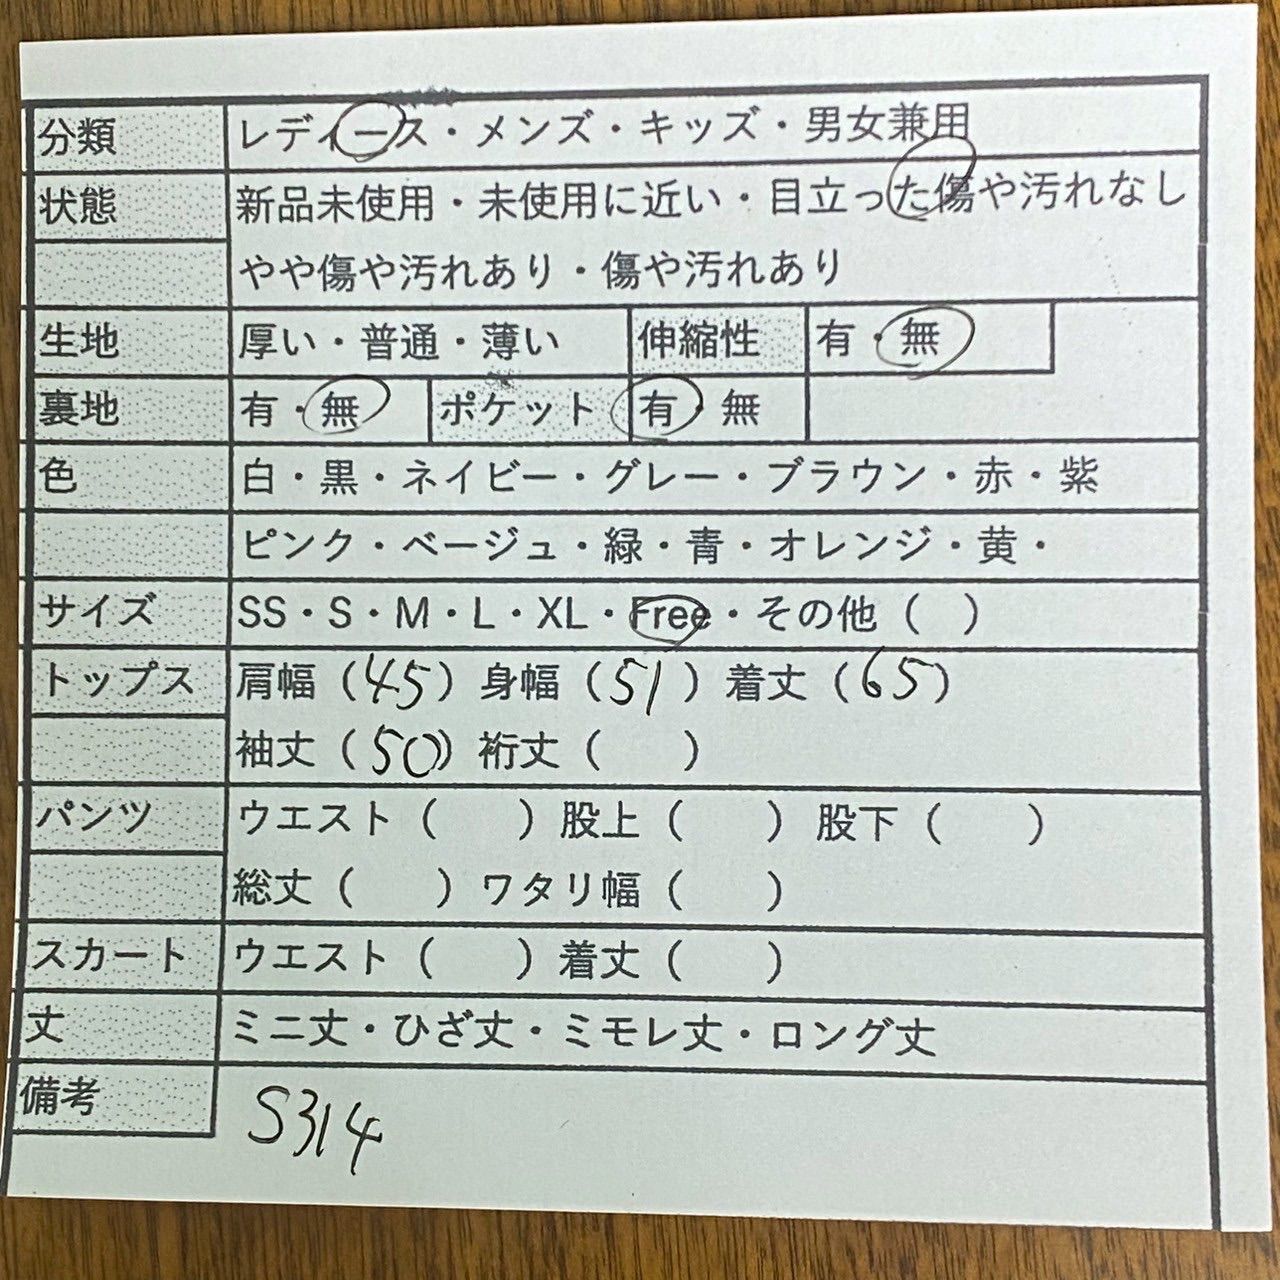 分類 レディース・メンズ・キッズ・男女兼用
状態 新品未使用・未使用に近い・目立った傷や汚れなし
やや傷や汚れあり・傷や汚れあり
生地 厚い・普通・薄い 伸縮性 有・無
裏地 有・無 ポケット 有・無
色 白・黒・ネイビー・グレー・ブラウン・赤・紫
ピンク・ベージュ・緑・青・オレンジ・黄・
サイズ SS・S・M・L・XL・Free・その他（ ）
トップス 肩幅（45）身幅（51）着丈（65）
袖丈（50）裄丈（ ）
パンツ ウエスト（ ）股上（ ）股下（ ）
総丈（ ）ワタリ幅（ ）
スカート ウエスト（ ）着丈（ ）
丈 ミニ丈・ひざ丈・ミモレ丈・ロング丈
備考 S314